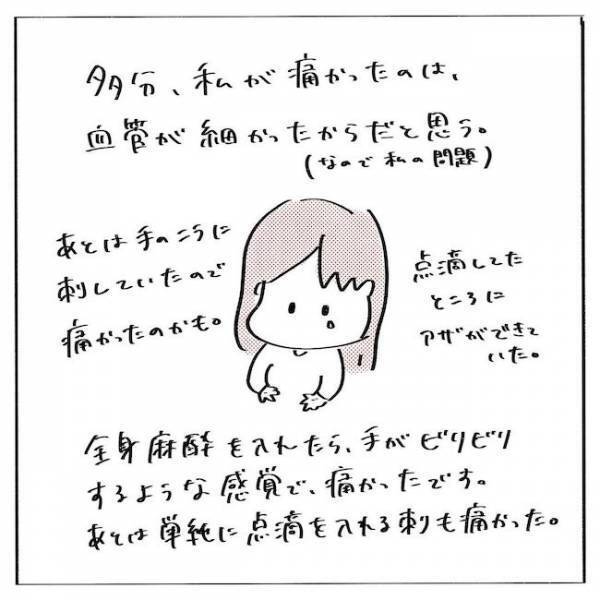 多分、私が痛かったのは、
血管が細かったからだと思う。
(なので私の問題)
あとは手のこうに
刺していたので
痛かったのかも。
点滴してた
ところに
アザができて
いた。
全身麻酔を入れたら、手がビリビリ
するような感覚で、痛かったです。
あとは単純に点滴を入れる刺も痛かった。